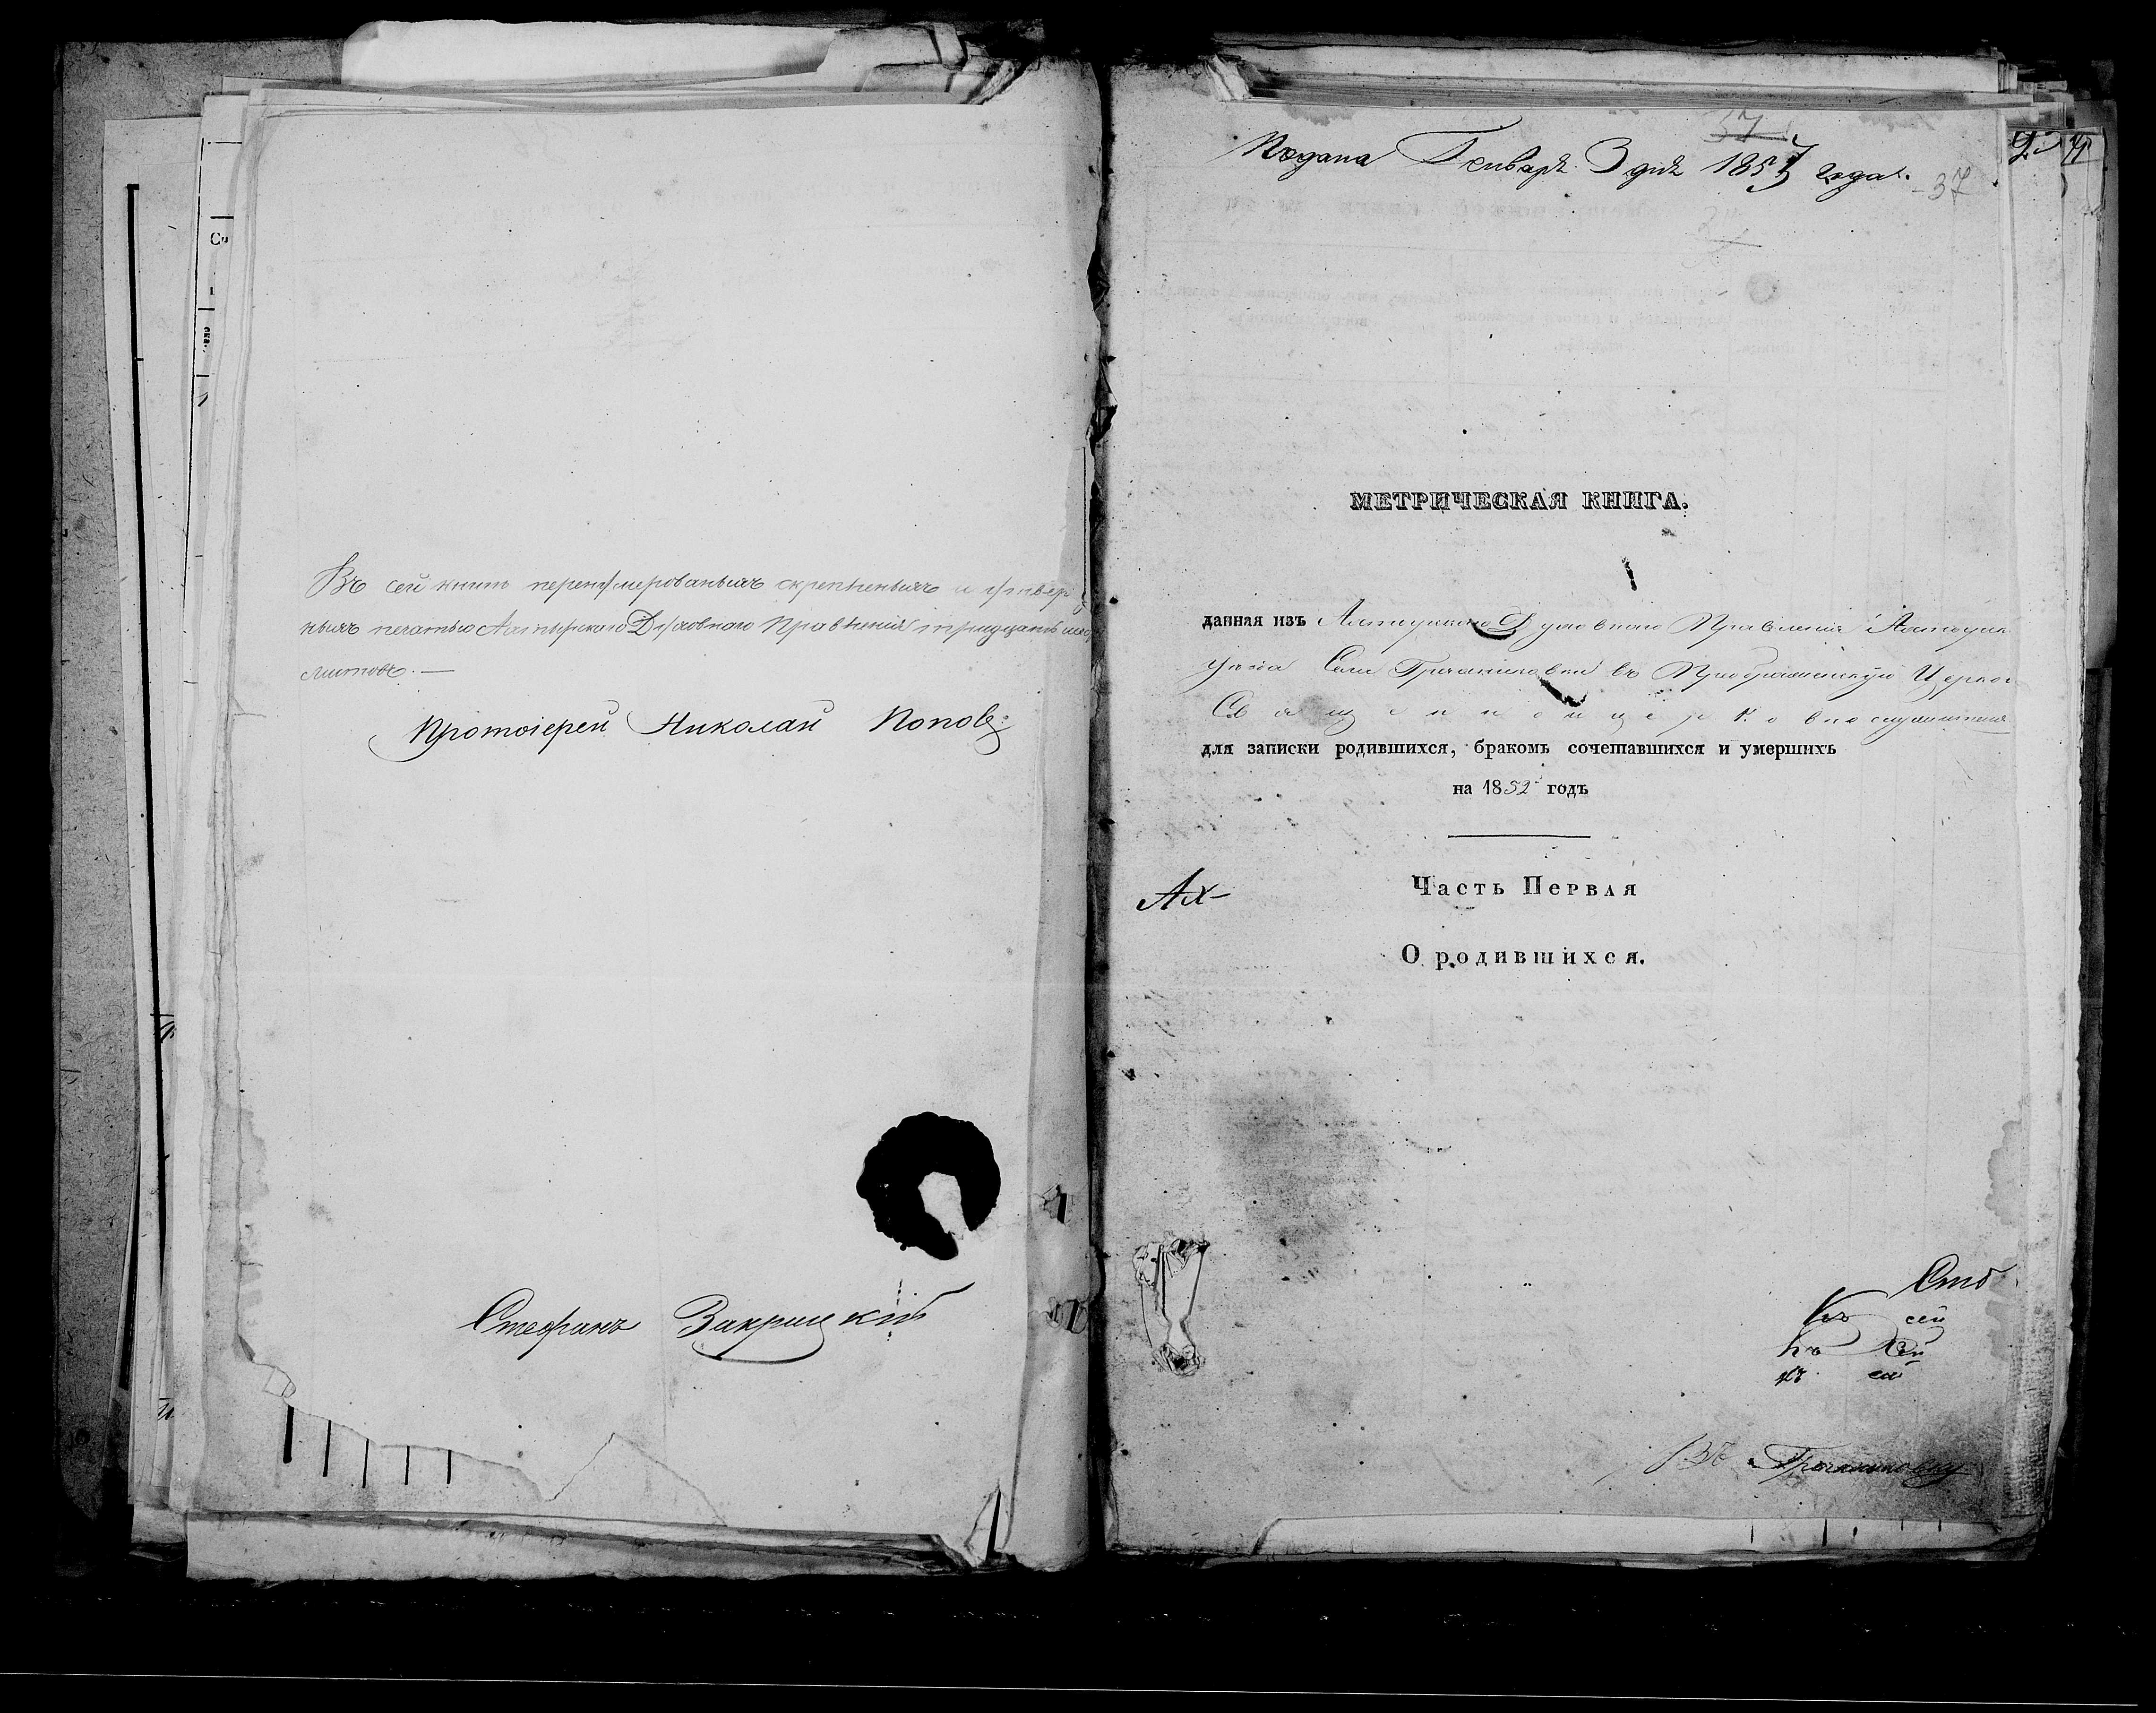 Въ сей книгѣ перенумерованыхъ скрепленыхъ и утвер
ныхъ печатью Ахтырского Духовного Правленія тридцать шесть
листовъ. —
Протоіерей Николай Поповъ
Стефанъ Закрицкій
37
Подана Генваря 3 дня 1853 года.
37
МЕТРИЧЕСКАЯ КНИГА.
данная изъ Ахтырскаго Духовнаго Правленія Ахтырск
уѣзда Села Грачаниковки въ Преображенскую Церковь
Священноцерковнослужителя
для записки родившихся, бракомъ сочетавшихся и умершихъ
на 1852 годъ
Ах-
Часть Первая
О родившихся.
Сто
Къ сей
Къ сей
къ сей
Въ Грачаниковку